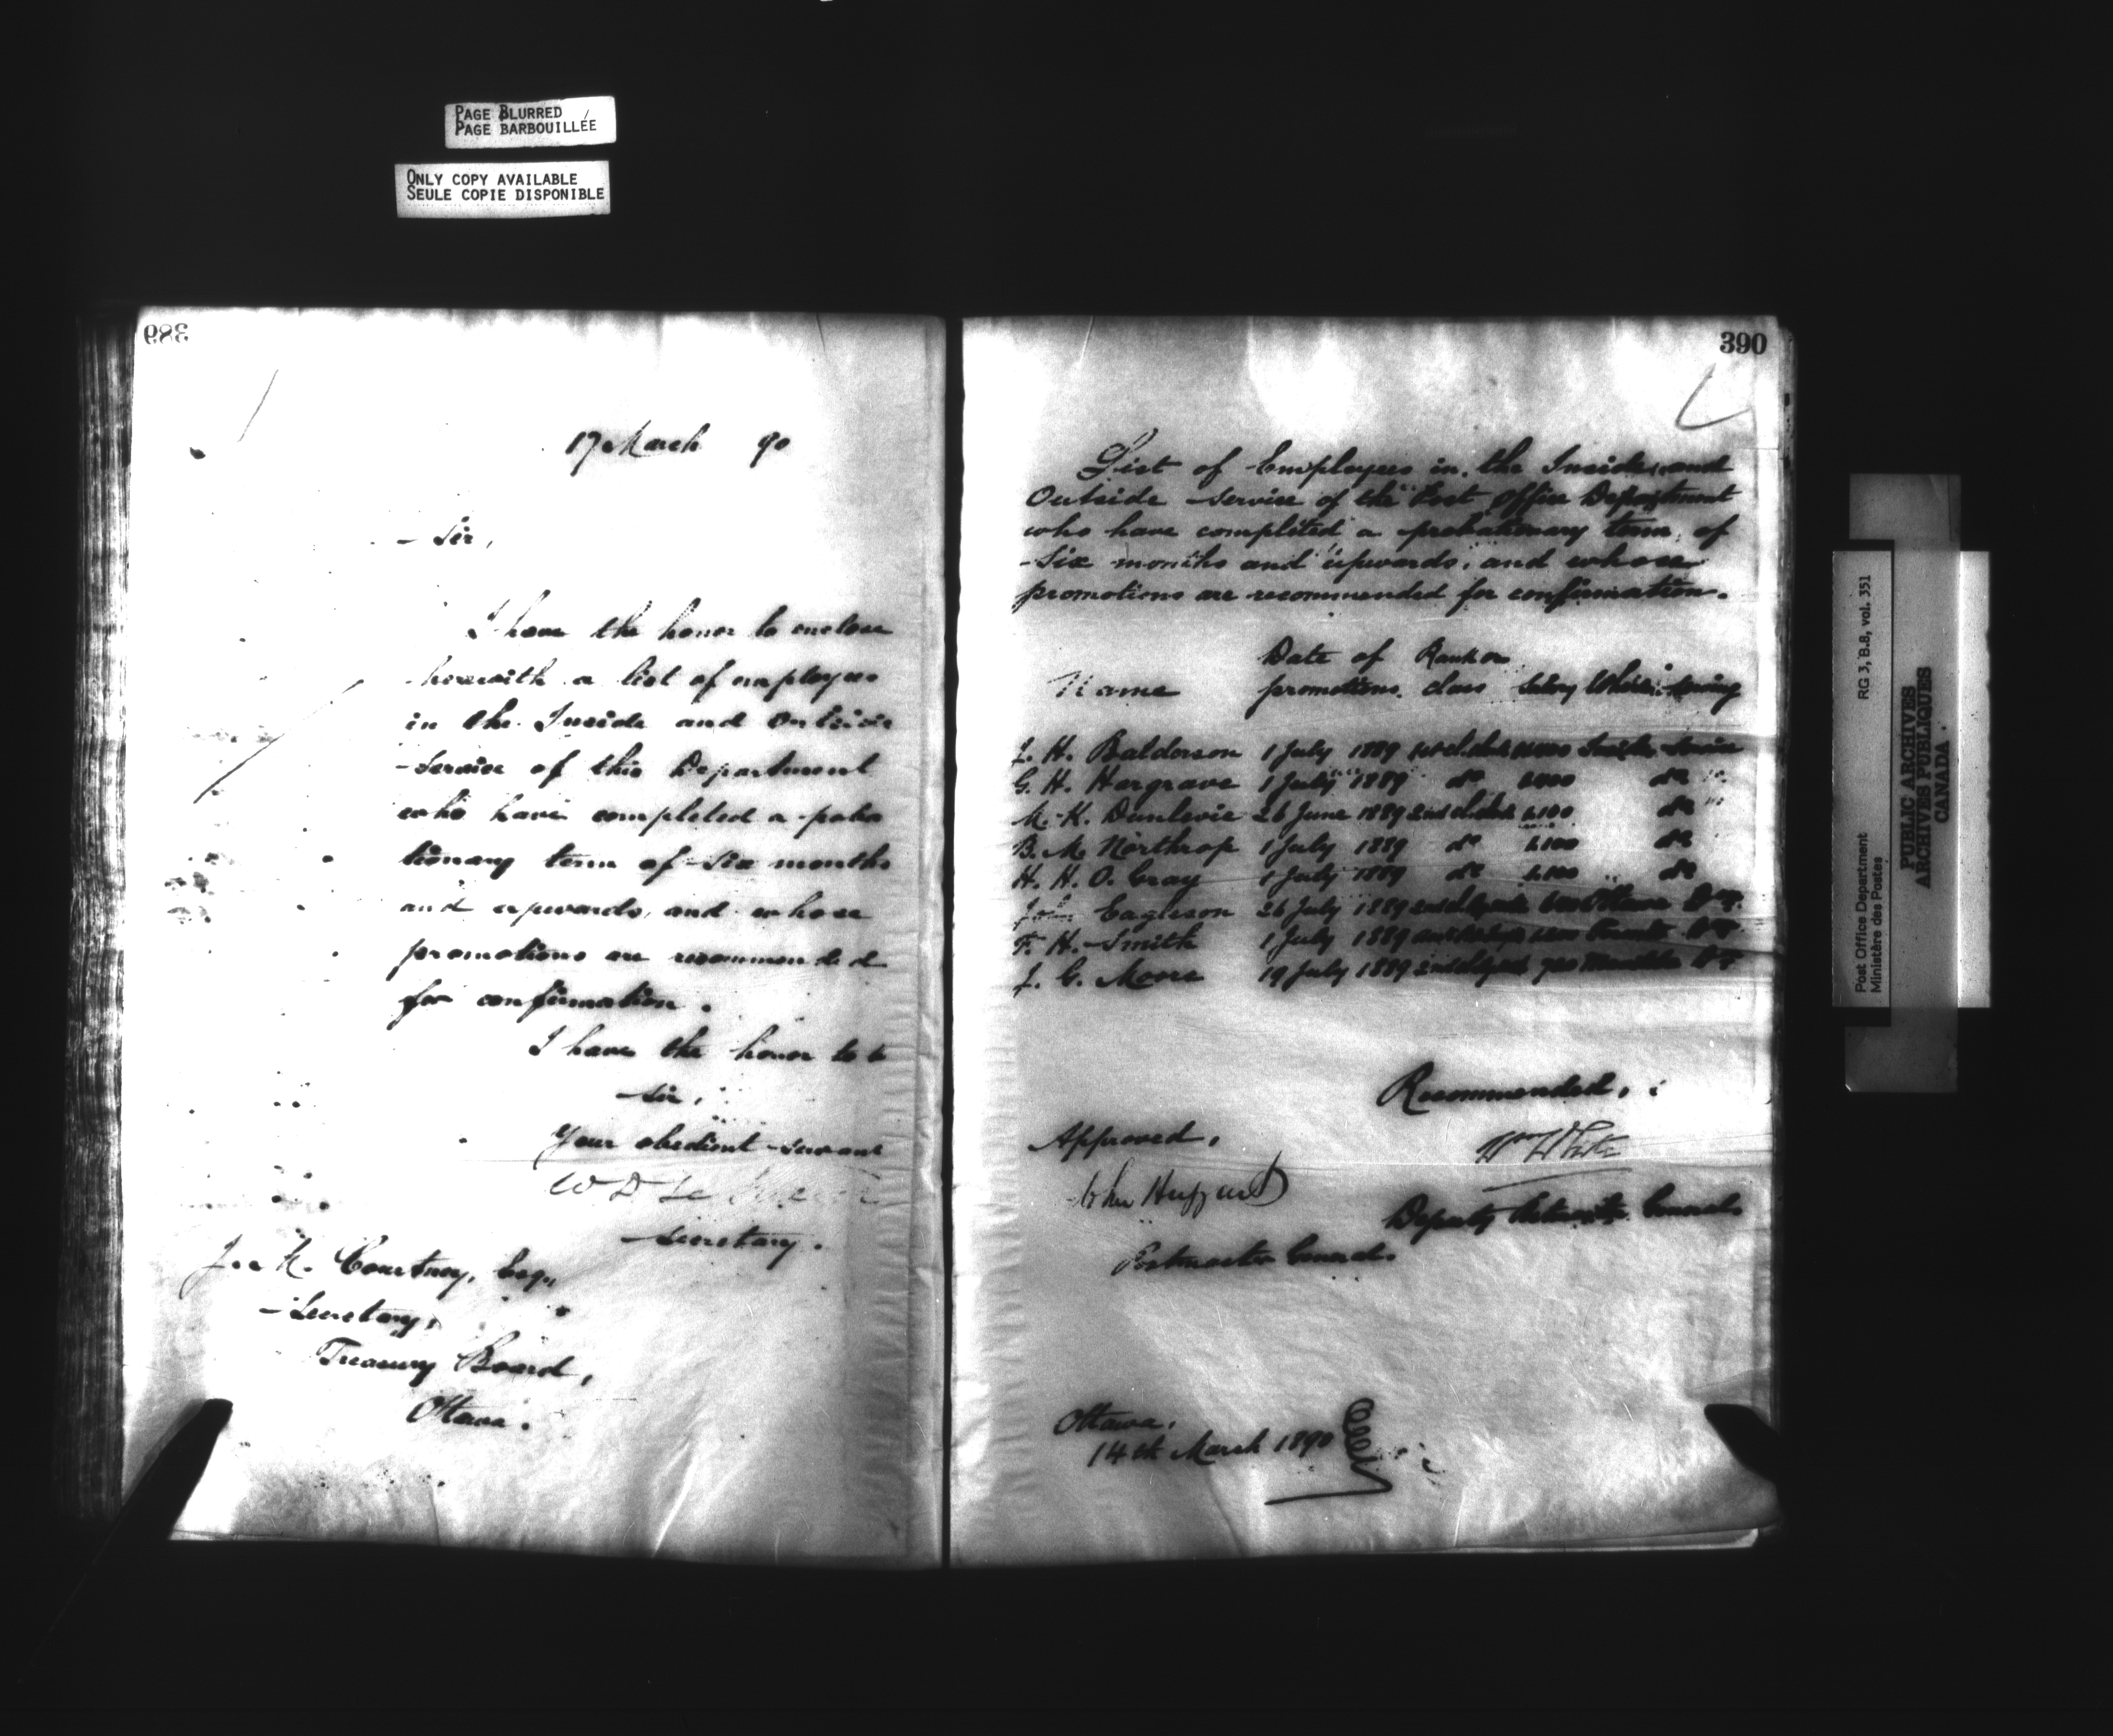 PAGE BLURRED
PAGE BARBOUILLÉE
ONLY COPY AVAILABLE
SEULE COPIE DISPONIBLE
389
17 March 90
Sir,
I have the honor to enclose
herewith a list of employees
in the Inside and Outside
Service of this Department
who have completed a proba
tionary term of six months
and upwards, and whose
promotions are recommended
for confirmation.
I have the honor to b
Sir,
Your obedient servant
W D Le
Secretary.
J. M. Courtney, Esq.,
Secretary,
Treasury Board,
Ottawa.
390
List of Employees in the Inside and
Outside Service of the Post Office Department
who have completed a probationary term of
Six months and upwards, and whose
promotions are recommended for confirmation.
Date of Rank or
Name promotions. class Salary Where serving
J. H. Balderson 1 July 1889 1st cl. clerk Inside Service
G. H. Hargrave 1 July 1889 do 1400 do
M. K. Dunlevie 26 June 1889 2nd cl. clerk 1100 do
B. M. Northrop 1 July 1889 do 1100 do
H. H. O. Gray 1 July 1889 do 1100 do
John Eagleson 26 July 1889 Ottawa
F. H. Smith 1 July 1889 Toronto
J. G. Moore 19 July 1889
Recommended,
Approved,
Wm White
John Haggart
Deputy Postmaster General.
Postmaster General.
Ottawa,
14th March 1890
Post Office Department RG 3, B.8, vol. 351
Ministère des Postes
PUBLIC ARCHIVES
ARCHIVES PUBLIQUES
CANADA